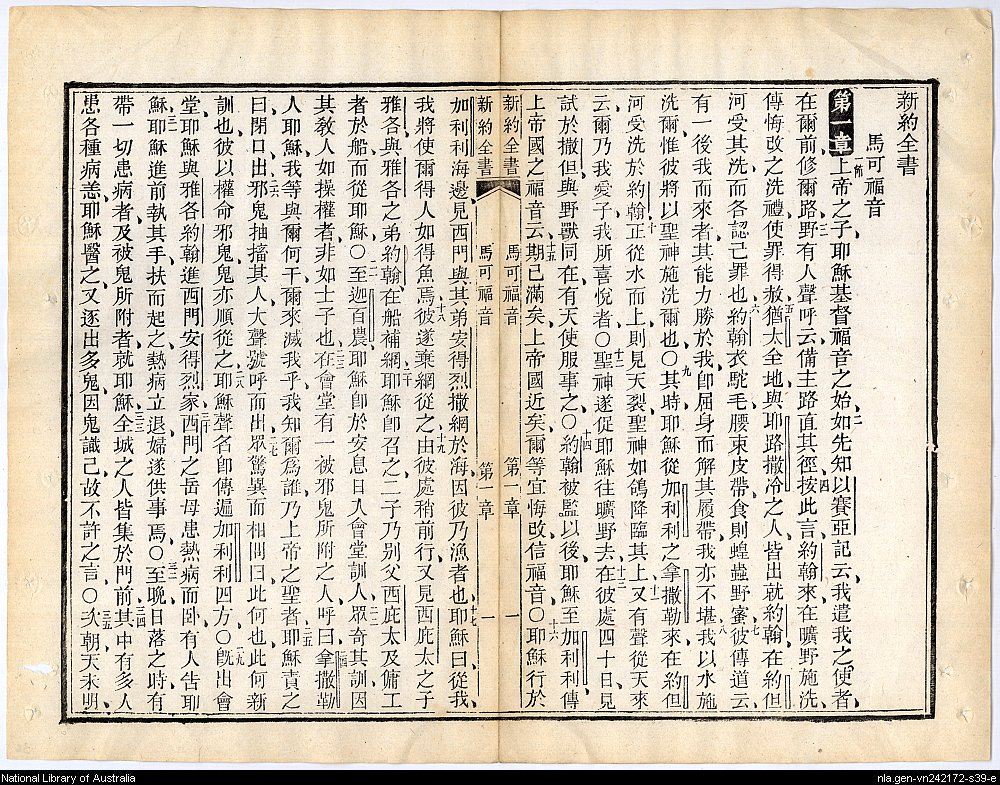 新約全書
馬可福音
第一章
一節上帝之子耶穌基督福音之始如先知以賽亞記云我遣我之使者
在爾前修爾路野有人聲呼云備主路直其徑按此言約翰來在曠野施洗
傳悔改之洗禮使罪得赦猶太全地與耶路撒冷之人皆出就約翰在約但
河受其洗而各認己罪也約翰衣駝毛腰束皮帶食則蝗蟲野蜜彼傳道云
有一後我而來者其能力勝於我卽屈身而解其履帶我亦不堪我以水施
洗爾惟彼將以聖神施洗爾也〇其時耶穌從加利利之拿撒勒來在約但
河受洗於約翰正從水而上則見天裂聖神如鴿降臨其上又有聲從天來
云爾乃我愛子我所喜悅者〇聖神遂促耶穌往曠野去在彼處四十日見
試於撒但與野獸同在有天使服事之〇約翰被監以後耶穌至加利利傳
上帝國之福音云期已滿矣上帝國近矣爾等宜悔改信福音〇耶穌行於
新約全書 馬可福音 第一章 一
新約全書 馬可福音 第一章 一
如利利海邊見西門與其弟安得烈撒網於海因彼乃漁者也耶穌曰從我
我將使爾得人如得魚焉彼遂棄網從之由彼處稍前行又見西庇太之子
雅各與雅各之弟約翰在船補網耶穌卽召之二子乃別父西庇太及傭工
者於船而從耶穌〇至迦百農耶穌卽於安息日入會堂訓人眾奇其訓因
其敎人如操權者非如士子也在會堂有一被邪鬼所附之人呼曰拿撒勒
人耶穌我等與爾何干爾來滅我乎我知爾爲誰乃上帝之聖者耶穌責之
曰閉口出邪鬼抽搐其人大聲號呼而出眾驚異而相問曰此何也此何新
訓也彼以權命邪鬼鬼亦順從之耶穌聲名卽傳遍加利利四方〇旣出會
堂耶穌與雅各約翰進西門安得烈家西門之岳母患熱病而臥有人告耶
穌耶穌進前執其手扶而起之熱病立退婦遂供事焉〇至晚日落之時有
帶一切患病者及被鬼所附者就耶穌全城之人皆集於門前其中有多人
患各種病恙耶穌醫之又逐出多鬼因鬼識己故不許之言〇次朝天未明
National Library of Australia
nla.gen-vn242172-s39-e